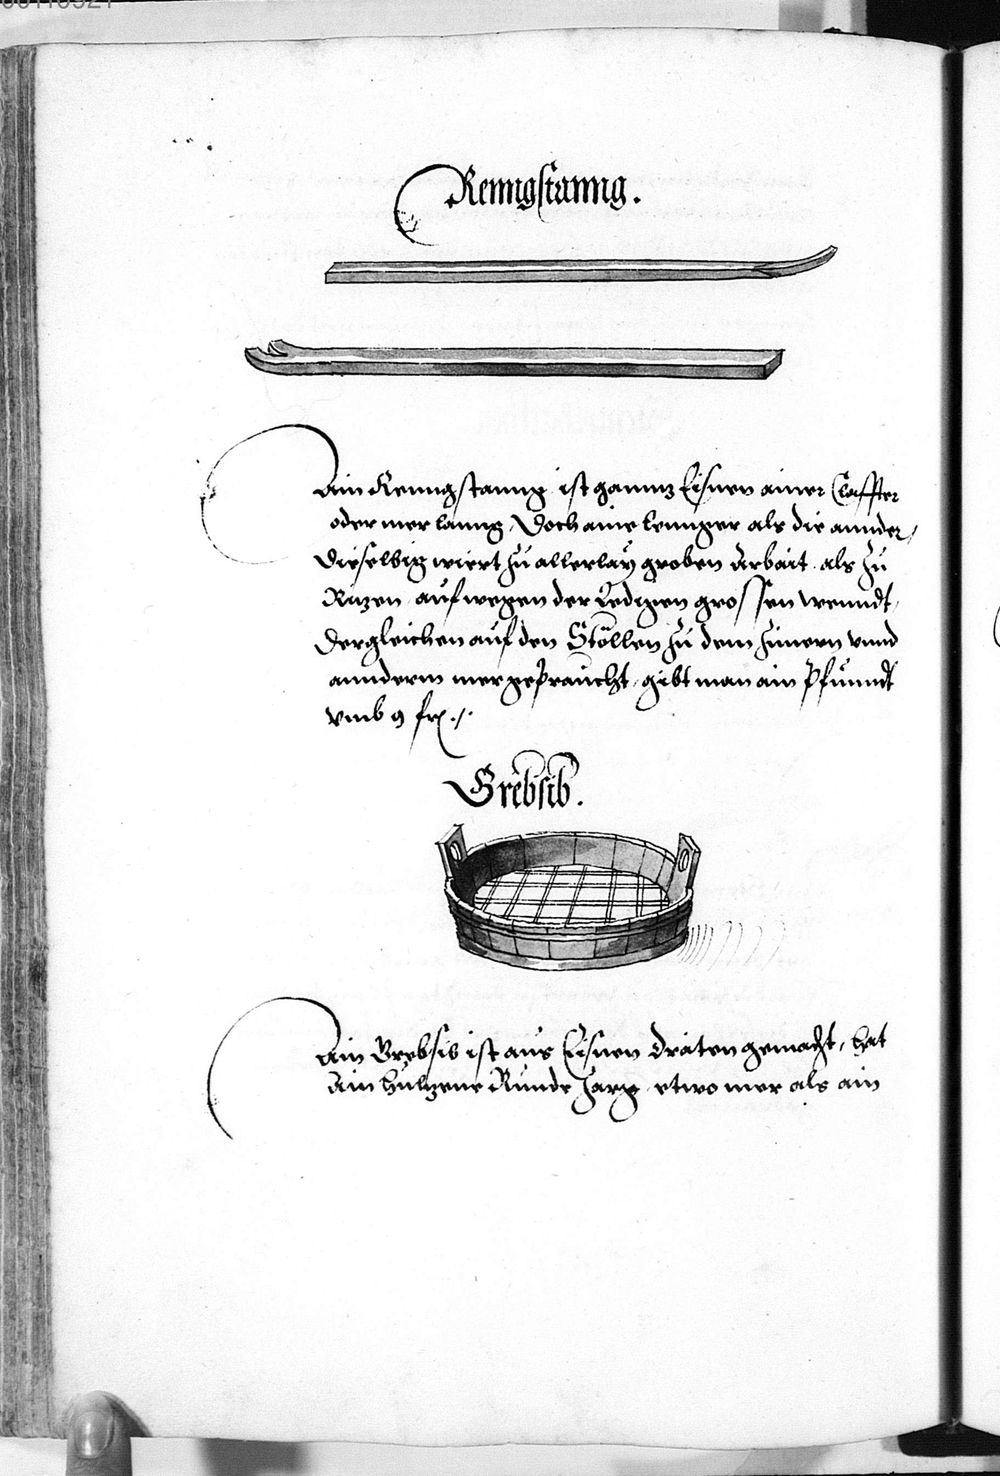 Renngstanng.
Ain Renngstanng ist ganntz Eisnen ainer Claffter
oder mer lanng, doch aine lennger als die annder,
dieselbig wiert zu allerlay groben Arbait, als zu
Ritzen, aufwegen der Ledigen grossen wenndt,
dergleichen auf den Stöllen zu dem Zimern vnnd
annderm mer gepraucht, gibt man ain Pfunndt
vmb 9 fr.
Grebsib.
Ain Grebsib ist aus Eisnen dräten gemacht, hat
Ain Hultzene Runde Zarg, etwo mer als ain